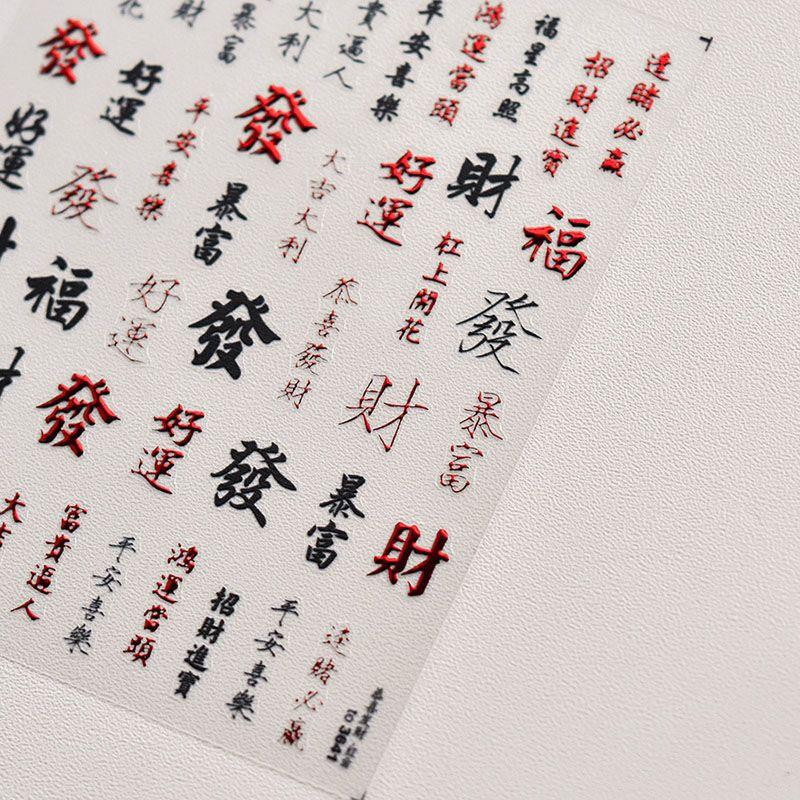 花
財
暴富
大利
貴逼人
平安喜樂
鴻運當頭
福星高照
招財進寶
逢賭必贏
發
好運
平安喜樂
發
大吉大利
好運
財
福
好運
發
暴富
恭喜發財
杠上開花
發
福
好運
發
財
暴富
發
好運
發
暴富
財
大吉
富貴逼人
平安喜樂
鴻運當頭
招財進寶
平安喜樂
逢賭必贏
to 3641